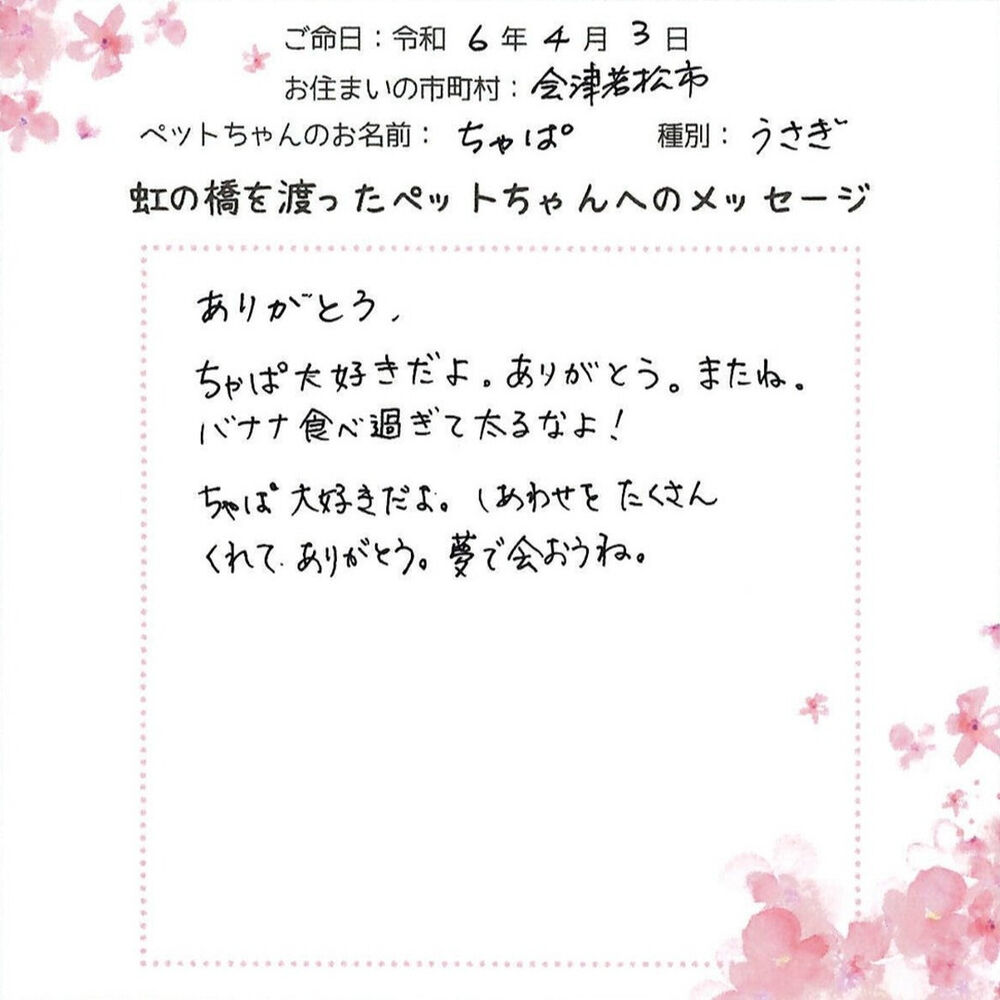 ご命日：令和 6 年 4 月 3 日
お住まいの市町村：会津若松市
ペットちゃんのお名前： ちゃぱ 種別： うさぎ
虹の橋を渡ったペットちゃんへのメッセージ
ありがとう、
ちゃぱ大好きだよ。ありがとう。またね。
バナナ食べ過ぎて太るなよ！
ちゃぱ 大好きだよ。しあわせを たくさん
くれて、ありがとう。夢で会おうね。